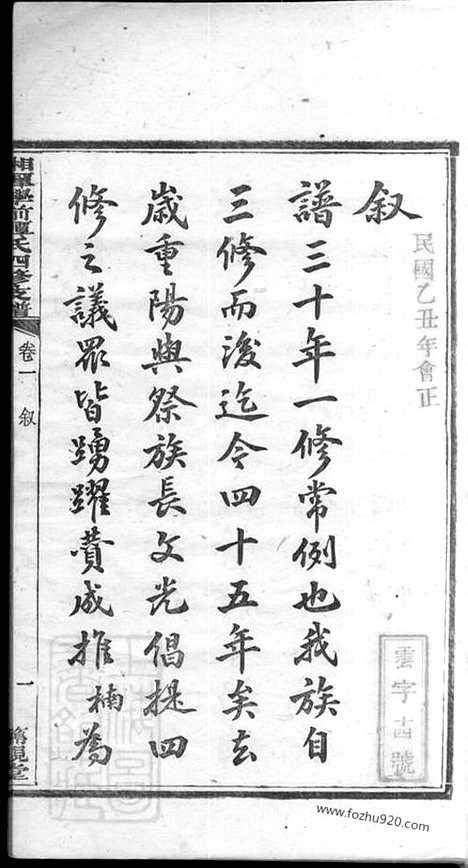 民國乙丑年會正
雲字古號
叙
譜三十年一修常例也我族自
三修而後迄今四十五年矣去
歲重陽與祭族長文光倡提四
修之議眾皆踴躍賛成推楠為
湘潭學前譚氏四修支譜
卷一
叙
一
www.fozhu920.com